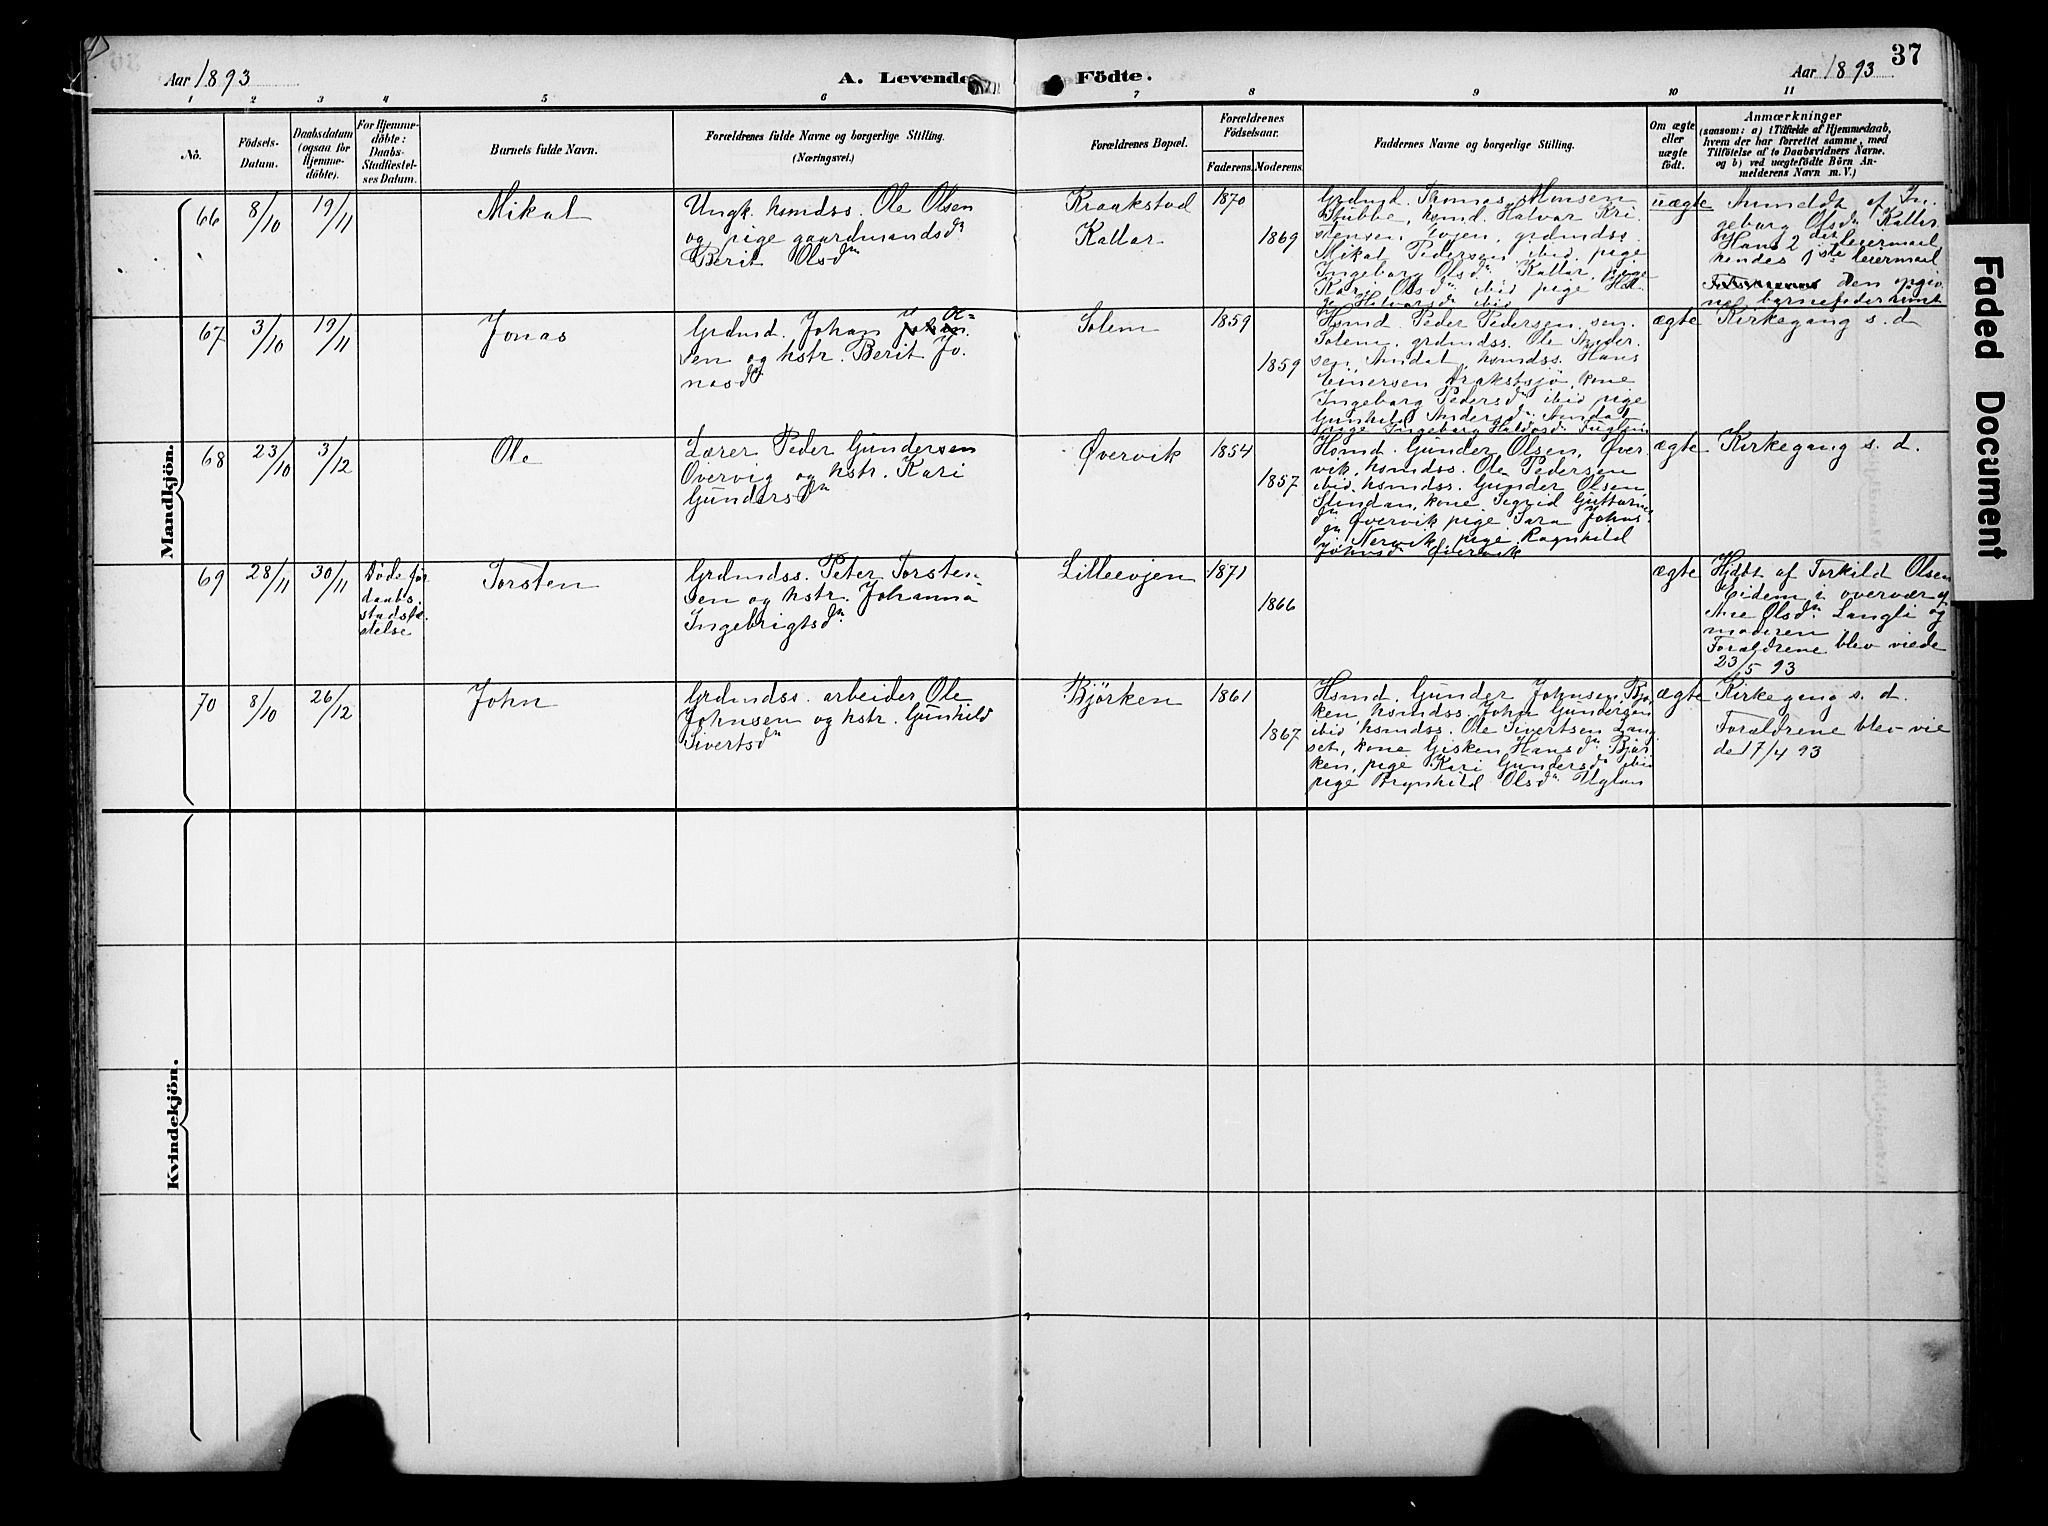 37
Aar 1893
A. Levende Födte.
Aar 1893
1 2 3 4 5 6 7 8 9 10 11
Nö.
Födsels-
Datum.
Daabsdatum
(ogsaa for
Hjemme-
döbte).
For Hjemme-
döbte:
Daabs-
Stadfæstel-
ses Datum.
Barnets fulde Navn.
Forældrenes fulde Navne og borgerlige Stilling.
(Næringsvei.)
Forældrenes Bopæl.
Forældrenes
Födselsaar.
Faderens. Moderens.
Faddernes Navne og borgerlige Stilling.
Om ægte
eller
uægte
födt.
Anmærkninger
(saasom: a) i Tilfælde af Hjemmedaab,
hvem der har forrettet samme, med
Tilföielse af to Daabsvidners Navne.
og b) ved uægtefödte Börn An-
melderens Navn m. V.)
Mandkjön.
66
8/10
19/11
Mikal
Ungk. hsmdss. Ole Olsen
og pige gaardmandsdr
Berit Olsdr
Kraakstad
Kallar
1870
1869
Grdmd. Thomas Monsen
Stubbe, hsmd. Halvar Kri
stensen Evjen, grdmdss.
Mikal Pedersen ibid. pige
Ingeborg Olsdr Kallar, pige
Kari Olsdr ibid pige Hel
ge Halvarsdr ibid
uægte
Anmeldt af In-
geborg Olsdr Kallar.
Hans 2det leiermaal
hendes 1ste leiermaal
den opgiv
ne barnefader
67
3/10
19/11
Jonas
Grdmd. Johan
sen og hstr. Berit Jo-
nasdr
Solem
1859
1859
Hsmd. Peder Pedersen sen.
Solem, grdmdss. Ole Ander
sen Aundal, hsmdss. Hans
Einersen kone
Ingeborg Pedersdr ibid pige
Gunhild Andersdr Aundal
pige Ingeborg
ægte
Kirkegang s. d
68
23/10
3/12
Ole
Lærer Peder Gundersen
Overvig og hstr. Kari
Gundersdr
Øvervik
1854
1857
Hsmd. Gunder Olsen, Øver
vik, hsmdss. Ole Pedersen
ibid. hsmdss. Gunder Olsen
kone Sigrid
dr Øvervik pige Sara Johns
dr Nervik, pige Ragnhild
Johnsdr Øvervik
ægte
Kirkegang s. d.
69
28/11
30/11
Døde før
daabs.
stadfæ.
stelse
Torsten
Grdmdss. Peter Torsten-
sen og hstr. Johanna
Ingebrigtsdr
Lilleevjen
1871
1866
ægte
Hjdbt af Torkild Olsen
Eidem i overvær af
Ane Olsdr Langli og
moderen
Forældrene blev viede
23/5 93
70
8/10
26/12
John
Grdmdss. arbeider Ole
Johnsen og hstr. Gunhild
Sivertsdr
Björken
1861
1867
Hsmd. Gunder Johnsen, Bjør
ken, hsmdss. John Gundersen
ibid hsmdss. Ole Sivertsen Lang
set, kone Gisken Hansdr Bjør
ken, pige Kari Gundersdr ibid
pige Brynhild Olsdr Uglan
ægte
Kirkegang s. d.
Forældrene blev vie
de 17/4 93
Kvindekjön.
Faded Document